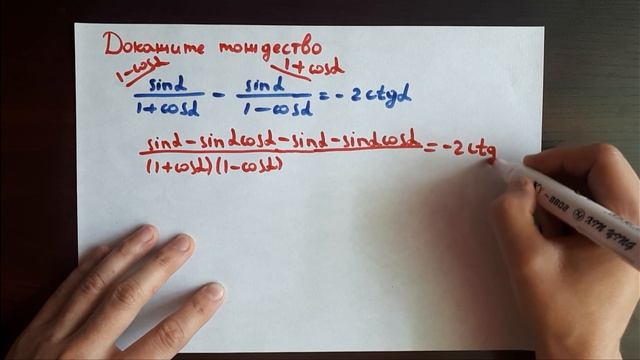 Докажите тождество
1-cosα 1+cosα
sinα/1+cosα - sinα/1-cosα = -2ctgα
sinα-sinαcosα-sinα-sinαcosα/(1+cosα)(1-cosα) = -2ctg